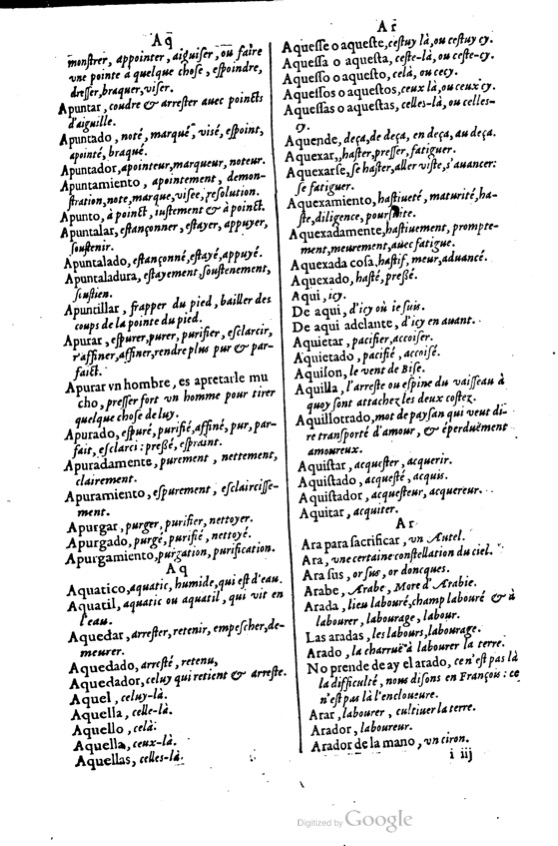 Aq
monstrer, appointer, aiguiser, ou faire
vne pointe à quelque chose, espoindre,
dresser, braquer, viser.
Apuntar, coudre & arrester auec poincts
d'aiguille.
Apuntado, noté, marqué, visé, espoint,
apointé, braqué.
Apuntador, apointeur, marqueur, noteur.
Apuntamiento, apointement, demon-
stration, note, marque, visee, resolution.
Apunto, à poinct, iustement & à poinct.
Apuntalar, estançonner, estayer, appuyer,
soustenir.
Apuntalado, estançonné, estayé, appuyé.
Apuntaladura, estayement, soustenement,
soustien.
Apuntillar, frapper du pied, bailler des
coups de la pointe du pied.
Apurar, espurer, purer, purifier, esclarcir,
r'affiner, affiner, rendre plus pur & par-
faict.
Apurar vn hombre, es apretarle mu
cho, presser fort vn homme pour tirer
quelque chose de luy.
Apurado, espuré, purifié, affiné, pur, par-
fait, esclarci: pressé, espraint.
Apuradamente, purement, nettement,
clairement.
Apuramiento, espurement, esclaircisse-
ment.
Apurgar, purger, purifier, nettoyer.
Apurgado, purgé, purifié, nettoyé.
Apurgamiento, purgation, purification.
Aq
Aquatico, aquatic, humide, qui est d'eau.
Aquatil, aquatic ou aquatil, qui vit en
l'eau.
Aquedar, arrester, retenir, empescher, de-
meurer.
Aquedado, arresté, retenu,
Aquedador, celuy qui retient & arreste.
Aquel, celuy-là.
Aquella, celle-là.
Aquello, celà.
Aquellos, ceux-là.
Aquellas, celles-là.
Ar
Aquesse o aqueste, cestuy là, ou cestuy cy.
Aquessa o aquesta, ceste-là, ou ceste-cy.
Aquesso o aquesto, celà, ou cecy.
Aquessos o aquestos, ceux là, ou ceux cy.
Aquessas o aquestas, celles-là, ou celles-
cy.
Aquende, deça, de deça, en deça, au deça.
Aquexar, haster, presser, fatiguer.
Aquexarse, se haster, aller viste, s'auancer:
se fatiguer.
Aquexamiento, hastiueté, maturité, ha-
ste, diligence, poursuite.
Aquexadamente, hastiuement, prompte-
ment, meurement, auec fatigue.
Aquexada cosa, hastif, meur, aduancé.
Aquexado, hasté, pressé.
Aqui, icy.
De aqui, d'icy où ie suis.
De aqui adelante, d'icy en auant.
Aquietar, pacifier, accoiser.
Aquietado, pacifié, accoisé.
Aquilon, le vent de Bise.
Aquilla, l'arreste ou espine du vaisseau à
quoy sont attachez les deux costez.
Aquillotrado, mot de paysan qui veut di-
re transporté d'amour, & éperduëment
amoureux.
Aquistar, acquester, acquerir.
Aquistado, acquesté, acquis.
Aquistador, acquesteur, acquereur.
Aquitar, acquiter.
Ar
Ara para sacrificar, vn Autel.
Ara, vne certaine constellation du ciel.
Ara sus, or sus, or doncques.
Arabe, Arabe, More d'Arabie.
Arada, lieu labouré, champ labouré & à
labourer, labourage, labour.
Las aradas, les labours, labourage.
Arado, la charruë à labourer la terre.
No prende de ay el arado, ce n'est pas là
la difficulté, nous disons en François: ce
n'est pas là l'encloueure.
Arar, labourer, cultiuer la terre.
Arador, laboureur.
Arador de la mano, vn ciron.
i iij
Digitized by Google